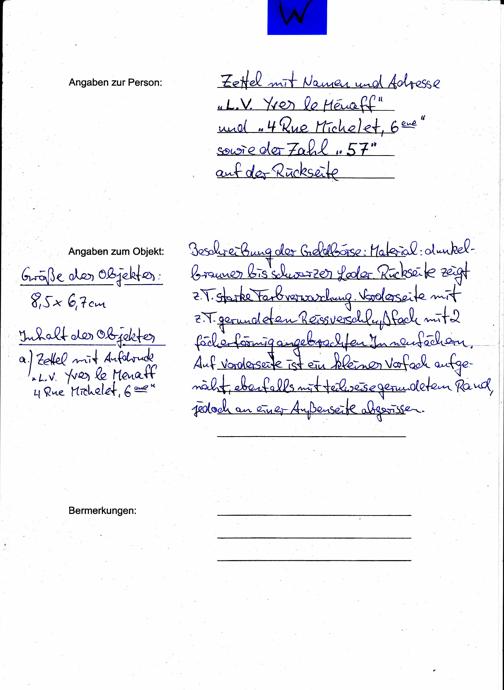 W
Angaben zur Person:
Zettel mit Namen und Adresse
"L.V. Yves le Ménaff"
und "4 Rue Michelet, 6eme"
sowie der Zahl "57"
auf der Rückseite
Angaben zum Objekt:
Beschreibung der Geldbörse: Material: dunkel-
brauner bis schwarzer Leder Rückseite zeigt
z.T. starke Farbverwaschung. Vorderseite mit
z.T. gerundeten Reissverschlußfach mit 2
fächerförmig angebrachten Innenfächern.
Auf Vorderseite ist ein kleiner Vorfach aufge-
näht, ebenfalls mit teilweise gerundetem Rand,
jedoch an einer Außenseite abgerissen.
Größe des Objektes:
8,5 x 6,7 cm
Inhalt des Objektes
a.) Zettel mit Aufdruck
"L.V. Yves le Menaff
4 Rue Michelet, 6eme"
Bermerkungen: